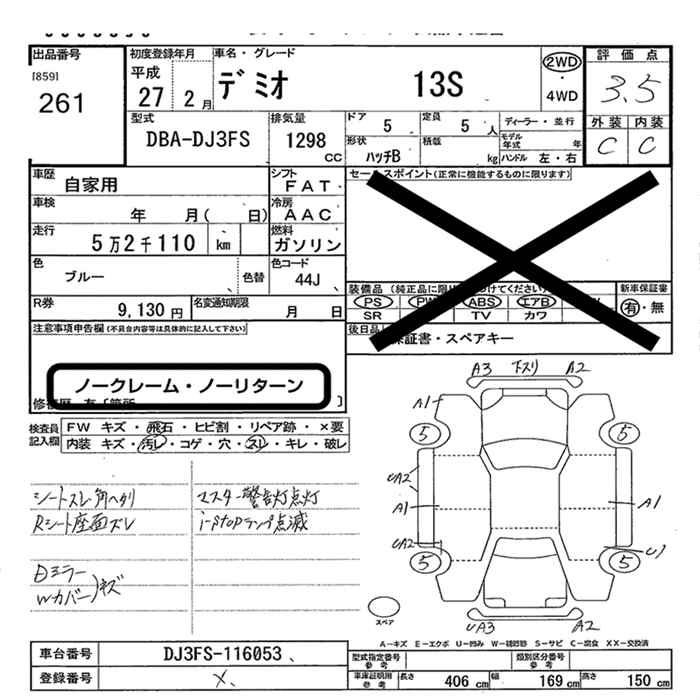 出品番号
[859]
261
初度登録年月
平成
27 2月
車名・グレード
デミオ 13S
2WD
・
4WD
評価点
3.5
外装 内装
C C
型式
DBA-DJ3FS
排気量
1298
CC
ドア
5
定員
5 人
形状
ハッチB
積載
kg
ディーラー・並行
モデル年式 年
ハンドル 左・右
車歴
自家用
シフト
FAT
車検
年 月( 日)
冷房
AAC
走行
5万2千110 km
燃料
ガソリン
色
ブルー
色替
色コード
44J
R券
9,130円
名変通知期限
月 日
セールスポイント(正常に機能するものに限ります)
装備品(純正品に限り
つけてください)
新車保証書
PS PW ABS エアB
有・無
SR TV カワ
後日品
保証書・スペアキー
注意事項申告欄(不具合内容等は具体的に記入して下さい)
ノークレーム・ノーリターン
検査員
記入欄
FW キズ・飛石・ヒビ割・リペア跡・×要
内装 キズ・汚レ・コゲ・穴・スレ・キレ・破レ
シートスレ角ヘタリ
Rシート座面ズレ
マスター警告灯点灯
i-stopランプ点滅
Dミラー
Wカバー)キズ
A3 下スリ A2
A1
5 5
UA2
A1 A1
UA2 U1
5 5
スペア
UA3 A2
A-キズ E-エクボ U-凹み W-補修跡 S-サビ C-腐食 XX-交換済
車台番号
DJ3FS-116053
登録番号
×
型式指定番号
参考
類別区分番号
参考
車庫証明用
参考
長さ
406 cm
幅
169 cm
高さ
150 cm